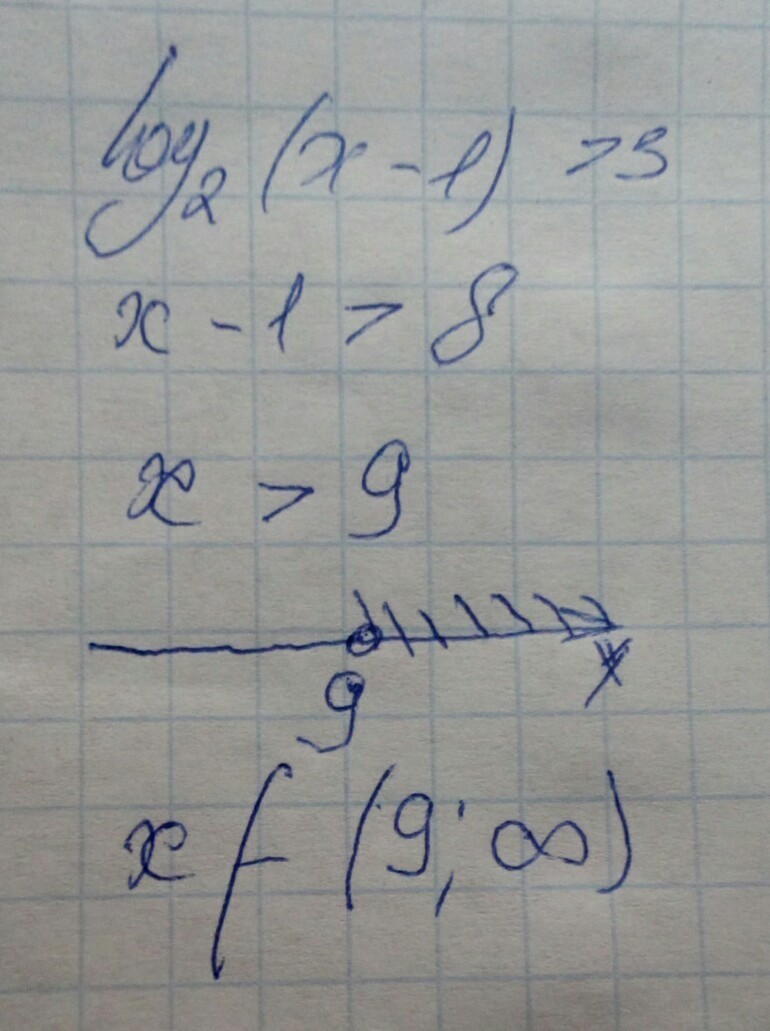 log₂ (x - 1) > 3
x - 1 > 8
x > 9
9 x
x ∈ (9; ∞)